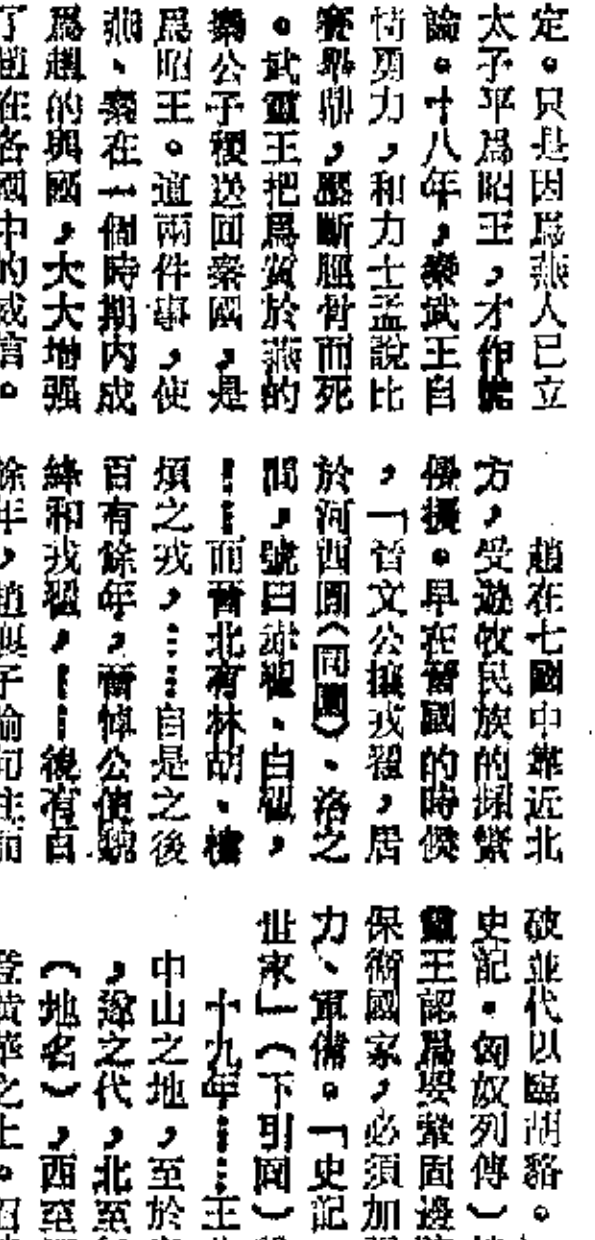 定。只是因爲燕人已立
太子平爲昭王，才作罷
論。十八年，秦武王自
恃勇力，和力士孟說比
賽舉鼎，壓斷脛骨而死
。武靈王把爲質於燕的
秦公子稷送回秦國，是
爲昭王。這兩件事，使
燕、秦在一個時期內成
爲趙的與國，大大增強
了趙在各國中的威信。
趙在七國中靠近北
方，受遊牧民族的
優擾。早在晉國的時候
，「晉文公攘戎翟，居
於河西圁（同圜）、洛之
間，號曰赤翟、白翟，
……而晉北有林胡、樓
煩之戎，……自是之後
百有餘年，晉悼公使魏
絳和戎翟，……後有百
餘年，趙襄子踰句注而
破並代以臨胡貉。
史記．匈奴列傳）
靈王認爲要鞏固邊
保衛國家，必須加
力、軍備。「史記
世家」（下引同）
十九年……王
中山之地，至於
，遂之代，北至
（地名），西至
登黃華之上。